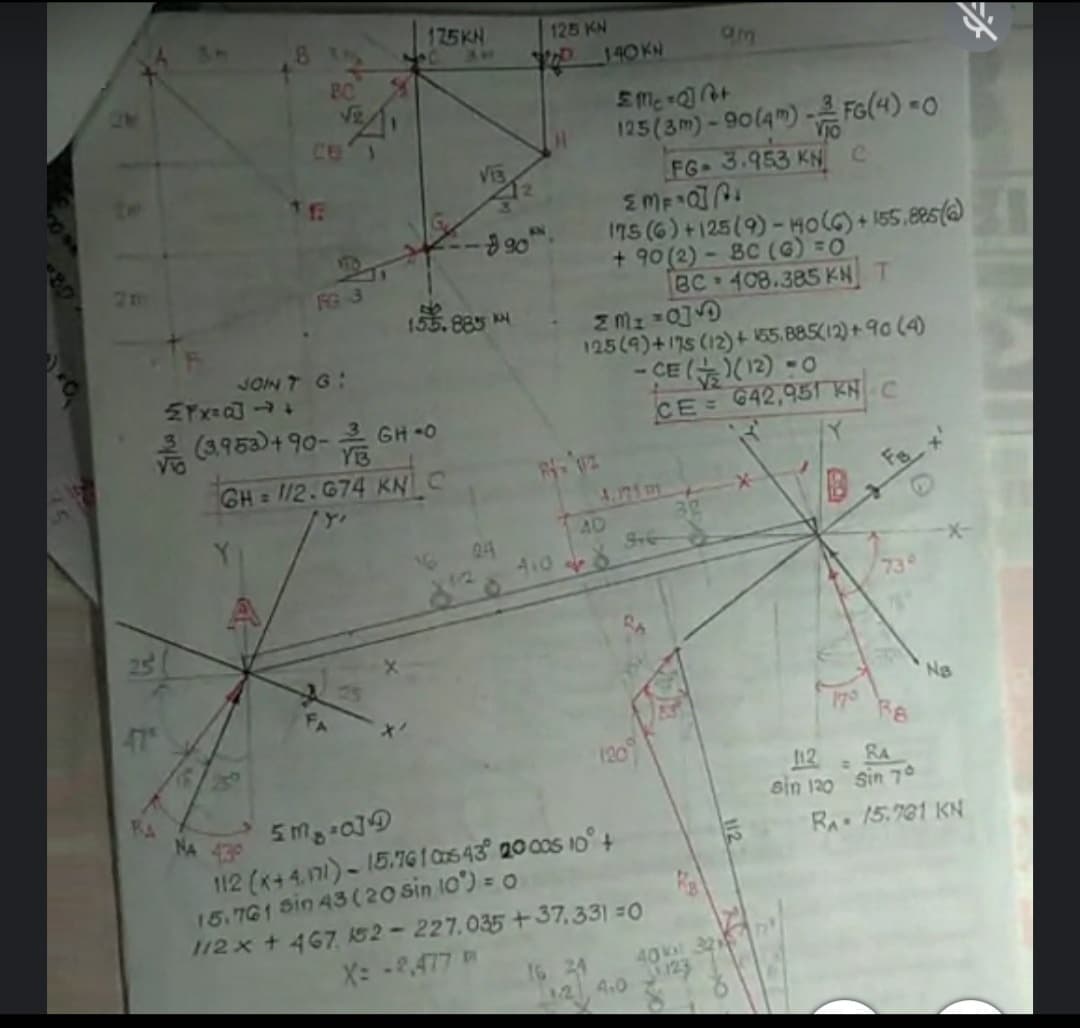 175KN
125 KN
140KN
9m
A
3m
B
C
3m
D
BC
√2
1
CE
1
2m
H
E
√13
2
3
G
90 KN
√10
1
FG 3
2m
155.885 KN
F
ΣMC=0]
125(3m)-90(4m)-3/√10 FG(4)=0
FG= 3.953 KN C
ΣMF=0]
175(6)+125(9)-140(6)+155.885(6)
+90(2)- BC(6)=0
BC = 408.385 KN T
ΣMI=0]
125(9)+175(12)+155.885(12)+90(4)
-CE(1/√2)(12)=0
CE = 642,951 KN C
JOINT G:
ΣFx=0] → +
3/√10 (3,953)+90- 3/√13 GH=0
GH = 112.674 KN C
Y'
Y
A
25°
47°
25°
RA
NA
43°
X
25
FA
X'
16
24
40
32
1.2
4.0
4.171 m
X
Y
B
FB
X'
X
73°
NB
17°
RB
RA
120°
112
RB
112/sin 120 = RA/sin 7°
RA = 15.761 KN
ΣMB=0]
112(x+4.171)-15.761 cos 43° 20 cos 10° +
15.761 sin 43(20 sin 10°) = 0
112x + 467.152 - 227.035 + 37.331 =0
X= -2,477 m
16 24
1.2
4.0
40 KN
32